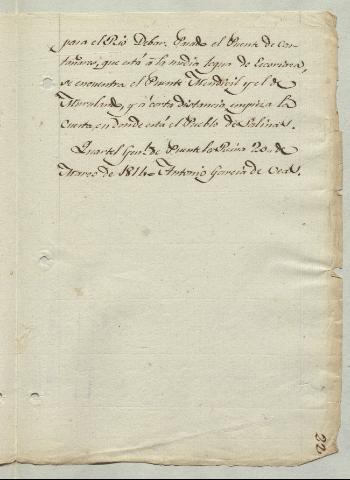 para el Rio Deba. Pasado el Puente de Cas-
tañares, que está á la media legua de Escoriaza,
se encuentra el Puente Mendivil y el de
Marulanda, y á corta distancia empieza la
Cuesta, en donde está el Pueblo de Salinas.
Quartel Gen.l de Puente la Reina 20 de
Marzo de 1814 = Antonio Garcia de
22